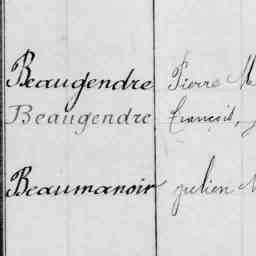 Beaugendre Pierre M
Beaugendre François,
Beaumanoir julien M